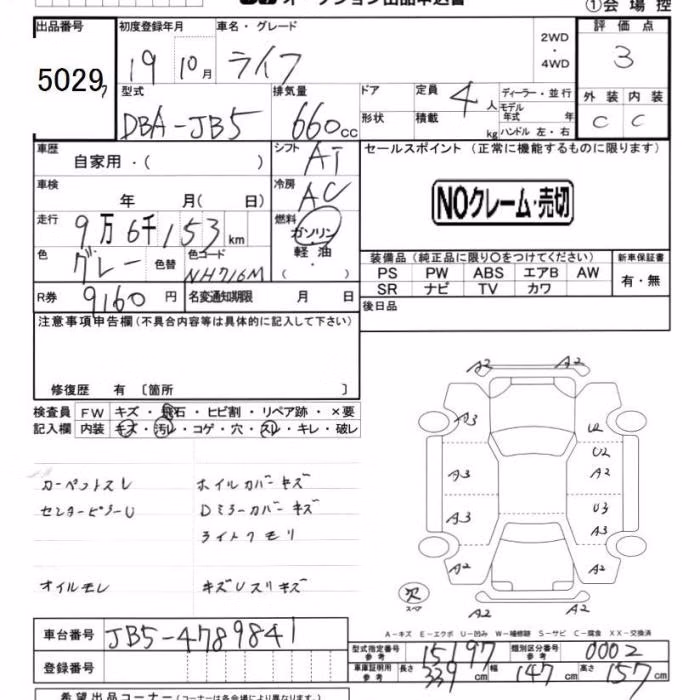 オークション出品申込書
①会場控
出品番号 初度登録年月 車名・グレード 2WD・4WD 評価点
5029 19 10月 ライフ 3
型式 排気量 ドア 定員 4人 ディーラー・並行 外装 内装
DBA-JB5 660cc 形状 積載 kg モデル年式 年 ハンドル 左・右 C C
車歴 自家用・( ) シフト AT セールスポイント（正常に機能するものに限ります）
車検 年 月( 日) 冷房 AC NOクレーム・売切
走行 9万6千153km 燃料 ガソリン・軽油・( )
色 グレー 色替 色コード NH716M 装備品（純正品に限り〇をつけてください） 新車保証書
PS PW ABS エアB AW 有・無
SR ナビ TV カワ
R券 9160円 名変通知期限 月 日 後日品
注意事項申告欄（不具合内容等は具体的に記入して下さい）
修復歴 有〔箇所 〕
検査員 FW キズ・飛石・ヒビ割・リペア跡・×要
記入欄 内装 キズ・汚レ・コゲ・穴・スレ・キレ・破レ
カーペットスレ ホイルカバーキズ
センターピラーU Dミラーカバーキズ
ライトクモリ
オイルモレ キズUスリキズ
A2 A2
A3 U2
U2
A3 A2
A3 U3
A3
A2 A2
欠 スペア A2 A2
A-キズ E-エクボ U-凹み W-補修跡 S-サビ C-腐食 XX-交換済
車台番号 JB5-4789841
型式指定番号 参考 15197 類別区分番号 参考 0002
登録番号 車庫証明用 参考 長さ 339cm 幅 147cm 高さ 157cm
希望出品コーナー（コーナーは各会場により異なります。）